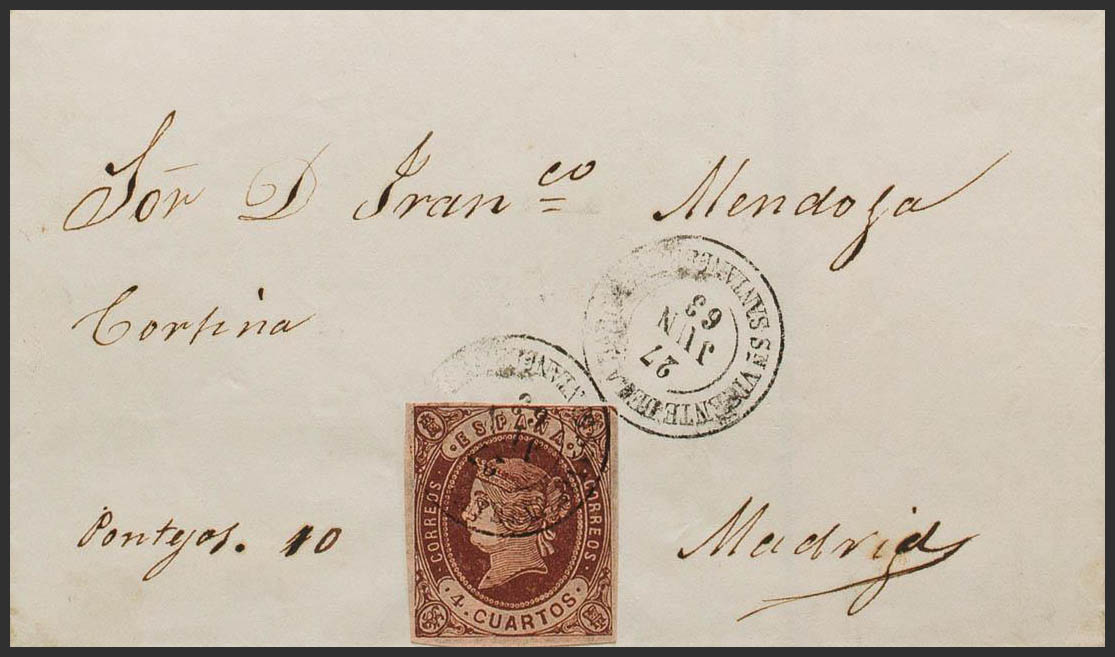 Sōr D Fran.co Mendoza
Cortina
SANTANDER
Sn VICENTE DE LA
27
JUN
63
ESPAÑA
CORREOS
CORREOS
4. CUARTOS.
Pontejos. 10
Madrid